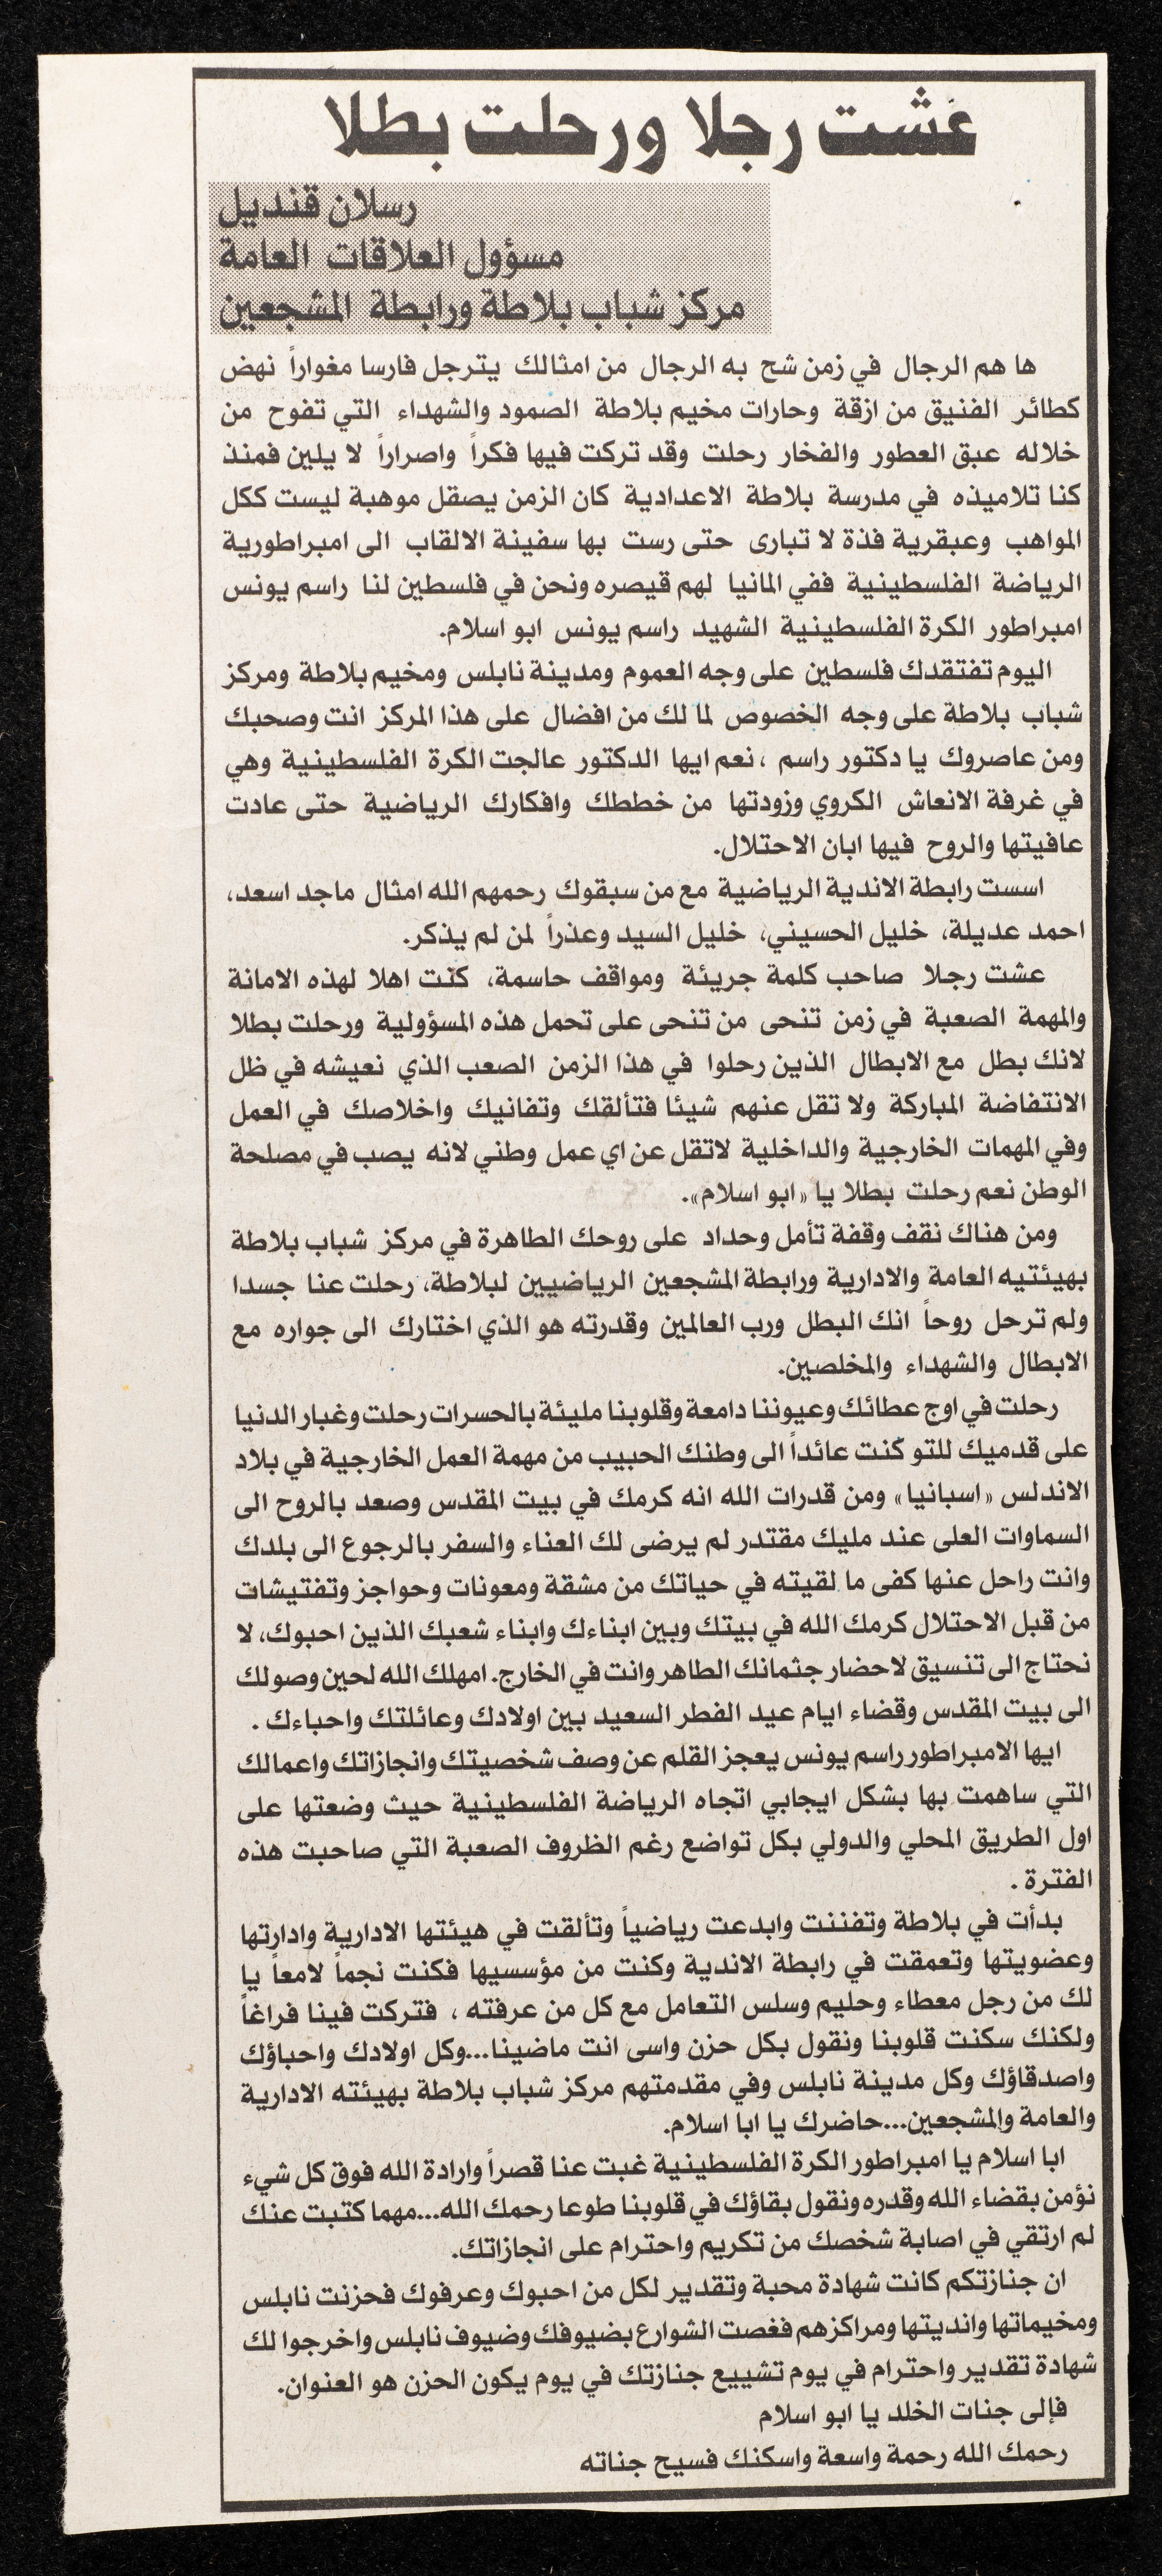 عشت رجلا ورحلت بطلا
رسلان قنديل
مسؤول العلاقات العامة
مركز شباب بلاطة ورابطة المشجعين
ها هم الرجال في زمن شح به الرجال من امثالك يترجل فارسا مغواراً نهض
كطائر الفنيق من ازقة وحارات مخيم بلاطة الصمود والشهداء التي تفوح من
خلاله عبق العطور والفخار رحلت وقد تركت فيها فكراً واصراراً لا يلين فمنذ
كنا تلاميذه في مدرسة بلاطة الاعدادية كان الزمن يصقل موهبة ليست ككل
المواهب وعبقرية فذة لا تبارى حتى رست بها سفينة الالقاب الى امبراطورية
الرياضة الفلسطينية ففي المانيا لهم قيصره ونحن في فلسطين لنا راسم يونس
امبراطور الكرة الفلسطينية الشهيد راسم يونس ابو اسلام.
اليوم تفتقدك فلسطين على وجه العموم ومدينة نابلس ومخيم بلاطة ومركز
شباب بلاطة على وجه الخصوص لما لك من افضال على هذا المركز انت وصحبك
ومن عاصروك يا دكتور راسم ، نعم ايها الدكتور عالجت الكرة الفلسطينية وهي
في غرفة الانعاش الكروي وزودتها من خططك وافكارك الرياضية حتى عادت
عافيتها والروح فيها ابان الاحتلال.
اسست رابطة الاندية الرياضية مع من سبقوك رحمهم الله امثال ماجد اسعد،
احمد عديلة، خليل الحسيني، خليل السيد وعذراً لمن لم يذكر.
عشت رجلا صاحب كلمة جريئة ومواقف حاسمة، كنت اهلا لهذه الامانة
والمهمة الصعبة في زمن تنحى من تنحى على تحمل هذه المسؤولية ورحلت بطلا
لانك بطل مع الابطال الذين رحلوا في هذا الزمن الصعب الذي نعيشه في ظل
الانتفاضة المباركة ولا تقل عنهم شيئا فتألقك وتفانيك واخلاصك في العمل
وفي المهمات الخارجية والداخلية لاتقل عن اي عمل وطني لانه يصب في مصلحة
الوطن نعم رحلت بطلا يا «ابو اسلام».
ومن هناك نقف وقفة تأمل وحداد على روحك الطاهرة في مركز شباب بلاطة
بهيئتيه العامة والادارية ورابطة المشجعين الرياضيين لبلاطة، رحلت عنا جسدا
ولم ترحل روحاً انك البطل ورب العالمين وقدرته هو الذي اختارك الى جواره مع
الابطال والشهداء والمخلصين.
رحلت في اوج عطائك وعيوننا دامعة وقلوبنا مليئة بالحسرات رحلت وغبار الدنيا
على قدميك للتو كنت عائداً الى وطنك الحبيب من مهمة العمل الخارجية في بلاد
الاندلس «اسبانيا» ومن قدرات الله انه كرمك في بيت المقدس وصعد بالروح الى
السماوات العلى عند مليك مقتدر لم يرضى لك العناء والسفر بالرجوع الى بلدك
وانت راحل عنها كفى ما لقيته في حياتك من مشقة ومعونات وحواجز وتفتيشات
من قبل الاحتلال كرمك الله في بيتك وبين ابناءك وابناء شعبك الذين احبوك، لا
نحتاج الى تنسيق لاحضار جثمانك الطاهر وانت في الخارج. امهلك الله لحين وصولك
الى بيت المقدس وقضاء ايام عيد الفطر السعيد بين اولادك وعائلتك واحباءك .
ايها الامبراطور راسم يونس يعجز القلم عن وصف شخصيتك وانجازاتك واعمالك
التي ساهمت بها بشكل ايجابي اتجاه الرياضة الفلسطينية حيث وضعتها على
اول الطريق المحلي والدولي بكل تواضع رغم الظروف الصعبة التي صاحبت هذه
الفترة .
بدأت في بلاطة وتفننت وابدعت رياضياً وتألقت في هيئتها الادارية وادارتها
وعضويتها وتعمقت في رابطة الاندية وكنت من مؤسسيها فكنت نجماً لامعاً يا
لك من رجل معطاء وحليم وسلس التعامل مع كل من عرفته ، فتركت فينا فراغاً
ولكنك سكنت قلوبنا ونقول بكل حزن واسى انت ماضينا...وكل اولادك واحباؤك
واصدقاؤك وكل مدينة نابلس وفي مقدمتهم مركز شباب بلاطة بهيئته الادارية
والعامة والمشجعين...حاضرك يا ابا اسلام.
ابا اسلام يا امبراطور الكرة الفلسطينية غبت عنا قصراً وارادة الله فوق كل شيء
نؤمن بقضاء الله وقدره ونقول بقاؤك في قلوبنا طوعا رحمك الله...مهما كتبت عنك
لم ارتقي في اصابة شخصك من تكريم واحترام على انجازاتك.
ان جنازتكم كانت شهادة محبة وتقدير لكل من احبوك وعرفوك فحزنت نابلس
ومخيماتها وانديتها ومراكزهم فغصت الشوارع بضيوفك وضيوف نابلس واخرجوا لك
شهادة تقدير واحترام في يوم تشييع جنازتك في يوم يكون الحزن هو العنوان.
فإلى جنات الخلد يا ابو اسلام
رحمك الله رحمة واسعة واسكنك فسيح جناته